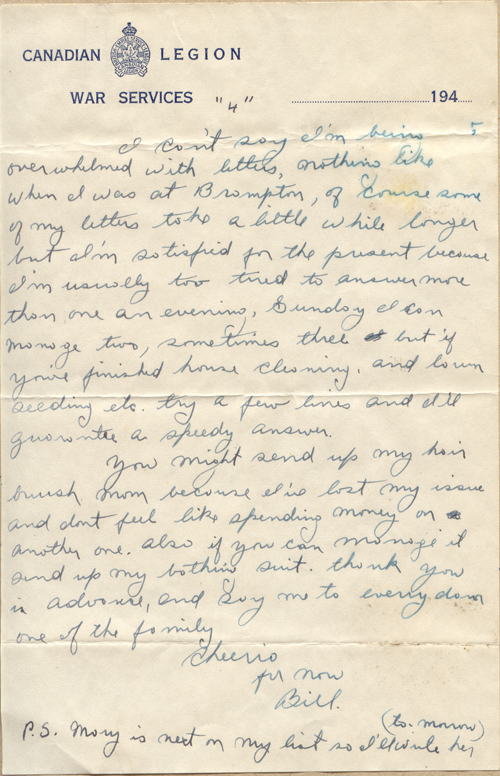 CANADIAN LEGION
WAR SERVICES "4" 194
I can't say I'm being 5
overwhelmed with letters, nothing like
when I was at Brampton, of course some
of my letters take a little while longer
but I'm satisfid for the present because
I'm usually too tired to answer more
than one an evening, Sunday I can
manage two, sometimes three but if
you've finished house cleaning, and lawn
seeding etc. try a few lines and I'll
guarantee a speedy answer.
You might send up my hair
brush mom because I've lost my issue
and dont feel like spending money on
another one. Also if you can manage it
send up my bathing suit. thank you
in advance, and say me to every damn
one of the family
Cheerio
for now
Bill.
(to-morrow)
P.S. Mary is next on my list so I'll write her